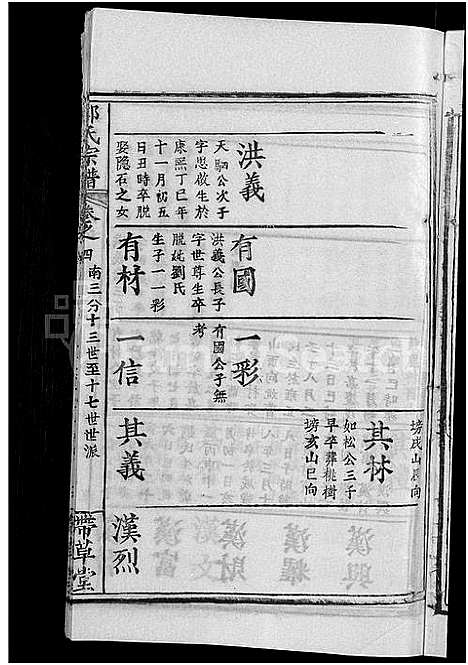 洪義
天駟公次子
字思啟生於
康熙丁巳年
十一月初五
日丑時卒脱
娶隐石之女
有國
洪義公長子
字世尊生卒
脱娶劉氏
生子一一彩
有材
一彩
有國公子無
考
一信
塝戌山辰向
其林
如松公三子
早卒葬桃樹
塝亥山巳向
其義
漢烈
氏宗譜
卷之四
南三分十三世至十七世世派
帶草堂